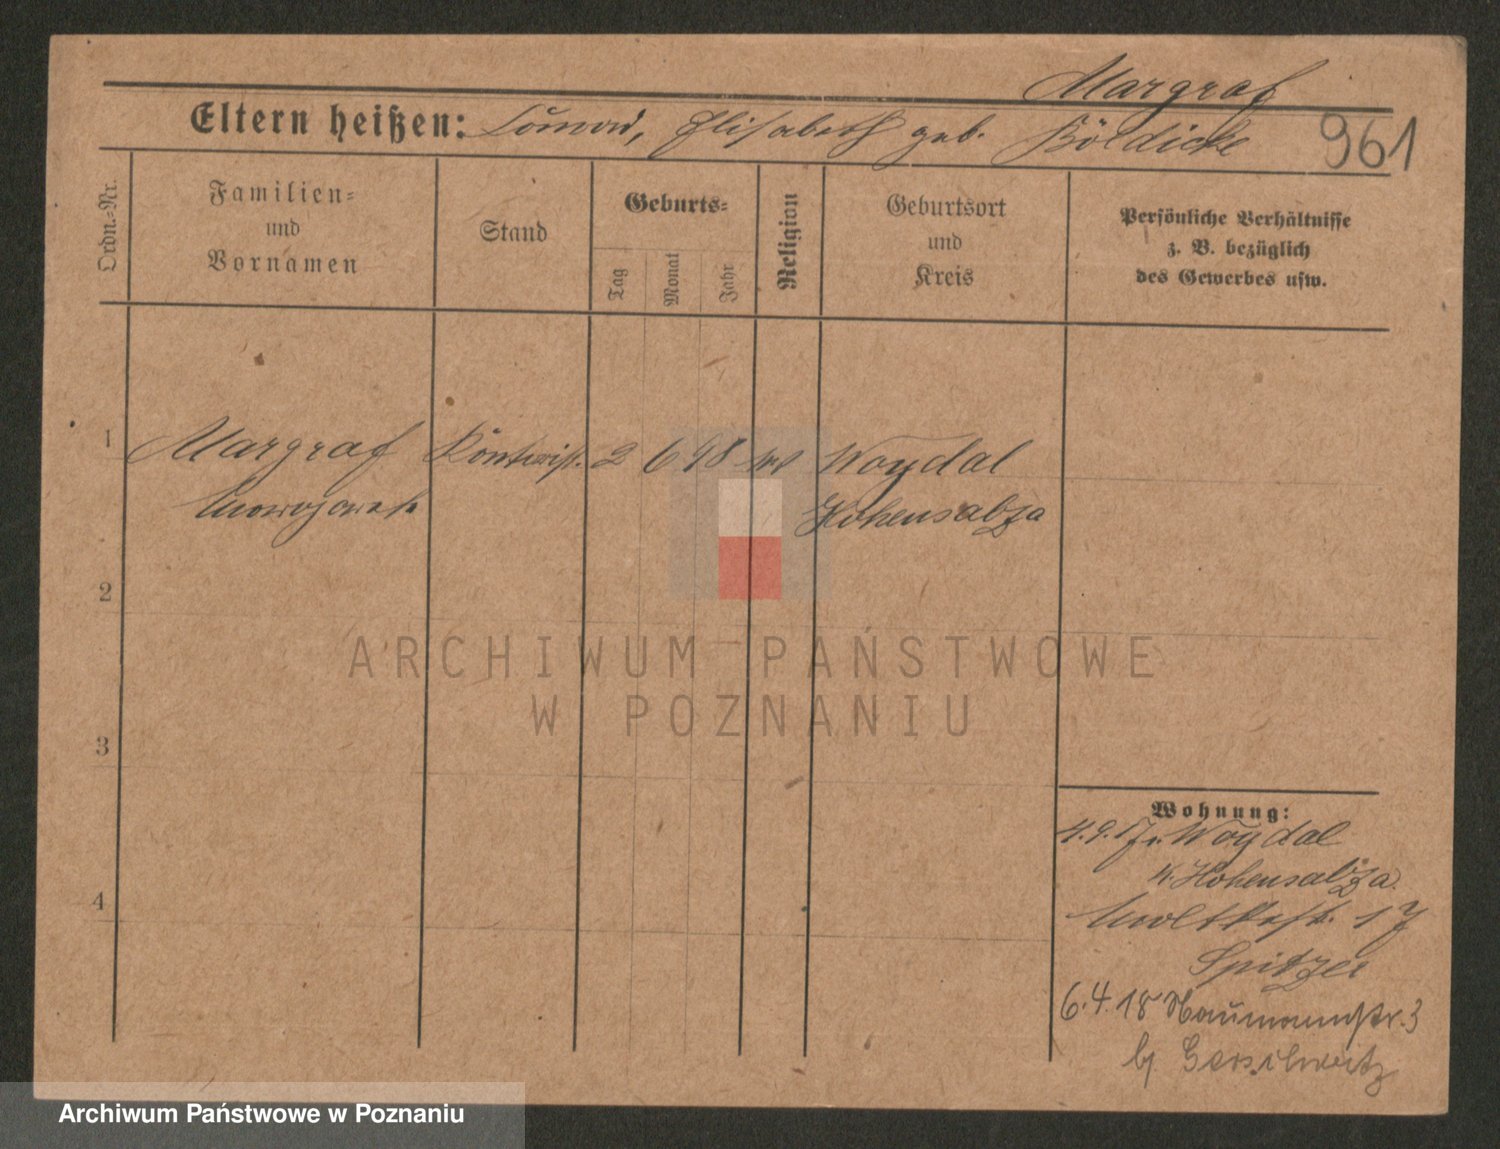 Margraf
Eltern heißen: Eduard, Elisabeth geb. Böldicke
961
Ordn.-Nr.
Familien-
und
Vornamen
Stand
Geburts-
Tag
Monat
Jahr
Religion
Geburtsort
und
Kreis
Persönliche Verhältnisse
z. B. bezüglich
des Gewerbes usw.
1 Margraf 2 6 98 Woydal
Hohensalza
2
3
4
Wohnung:
4.9.17 v. Woydal
K. Hohensalza
Moltkestr. 17
Spitzer
6.4.18 Naumannstr. 3
b/
ARCHIWUM PAŃSTWOWE
W POZNANIU
Archiwum Państwowe w Poznaniu